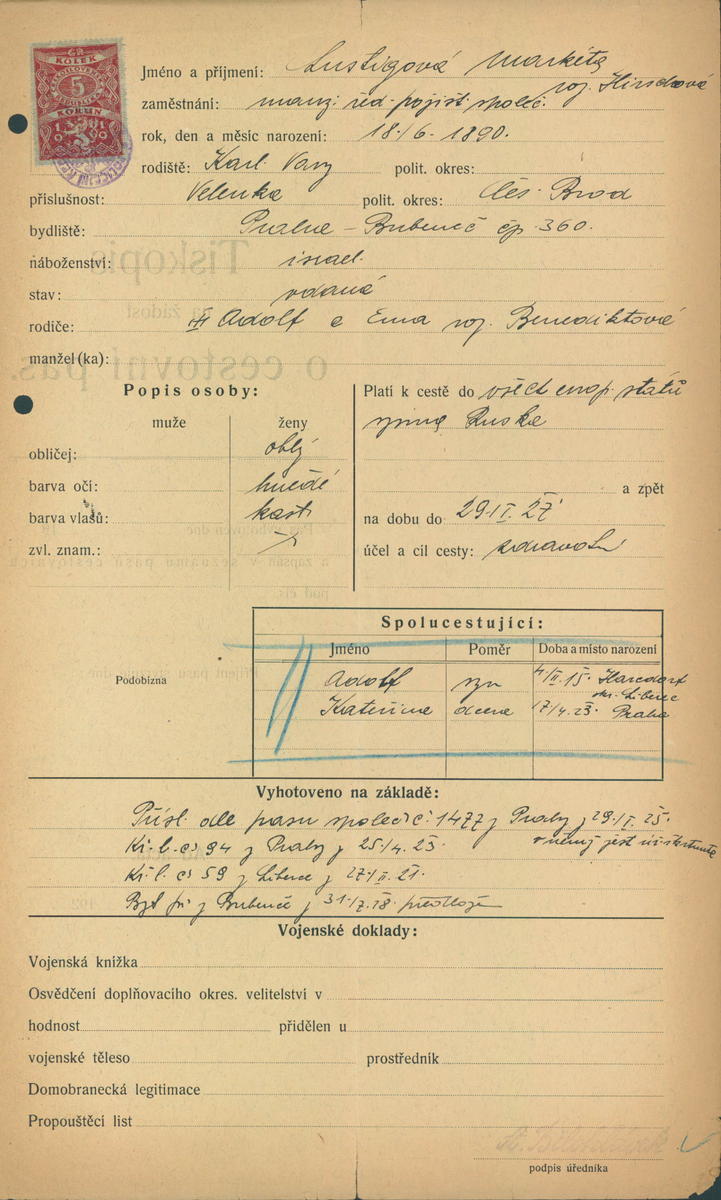 KOLEK
5
KORUN
1919
Jméno a příjmení: Lustigová Markéta
roz. Hirschová
zaměstnání: manž. řed. pojišť. společ.
rok, den a měsíc narození: 18./6. 1890.
rodiště: Karl. Vary polit. okres:
příslušnost: Velenka polit. okres: Čes. Brod
bydliště: Praha - Bubeneč čp. 360.
náboženství: israel.
stav: vdaná
rodiče: Adolf a Ema roz. Benediktová
manžel(ka):
Popis osoby:
muže ženy
obličej: oblý
barva očí: hnědé
barva vlasů: kašt.
zvl. znam.:
Platí k cestě do všech evrop. států
vyjma Ruska
a zpět
na dobu do 29./I. 27
účel a cil cesty: zdravotní
Podobizna
Spolucestující:
Jméno Poměr Doba a místo narození
Adolf syn 4./II. 15. Harcdorf
okr. Liberec
Kateřina dcera 17/4. 23. Praha
Vyhotoveno na základě:
Přísl. dle pasu společ. č. 1477 z Praby z 29./I. 25.
Kř. l. čs 94 z Prahy z 25/4. 23.
Kř. l. čs 59 z Liberce z 27/II. 21.
z Bubenče z 31./
Vojenské doklady:
Vojenská knížka
Osvědčení doplňovacího okres. velitelství v
hodnost přidělen u
vojenské těleso prostředník
Domobranecká legitimace
Propouštěcí list
podpis úředníka